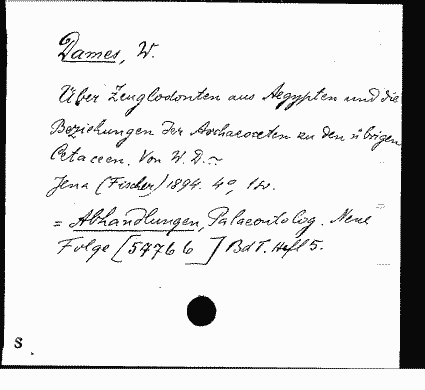 Dames, W.
Über Zeuglodonten aus Aegypten und die
Beziehungen der Archaeoceten zu den übrigen
Cetaceen. Von W. D. ~
Jena (Fischer) 1894. 4°,
= Abhandlungen, Palaeontolog. Neue
Folge [57766 ] Bd I. Heft 5.
S